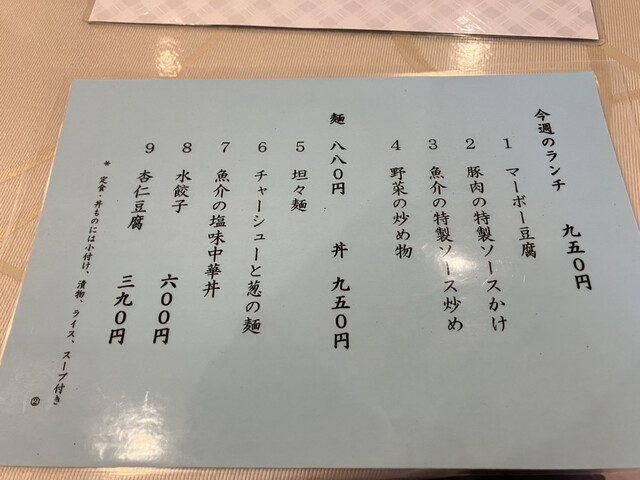 今週のランチ 九五0円
1 マーボー豆腐
2 豚肉の特製ソースかけ
3 魚介の特製ソース炒め
4 野菜の炒め物
麺 八八0円 丼 九五0円
5 坦々麺
6 チャーシューと葱の麺
7 魚介の塩味中華丼
8 水餃子 六00円
9 杏仁豆腐 三九0円
* 定食・丼ものには小付け、漬物、ライス、スープ付き
②